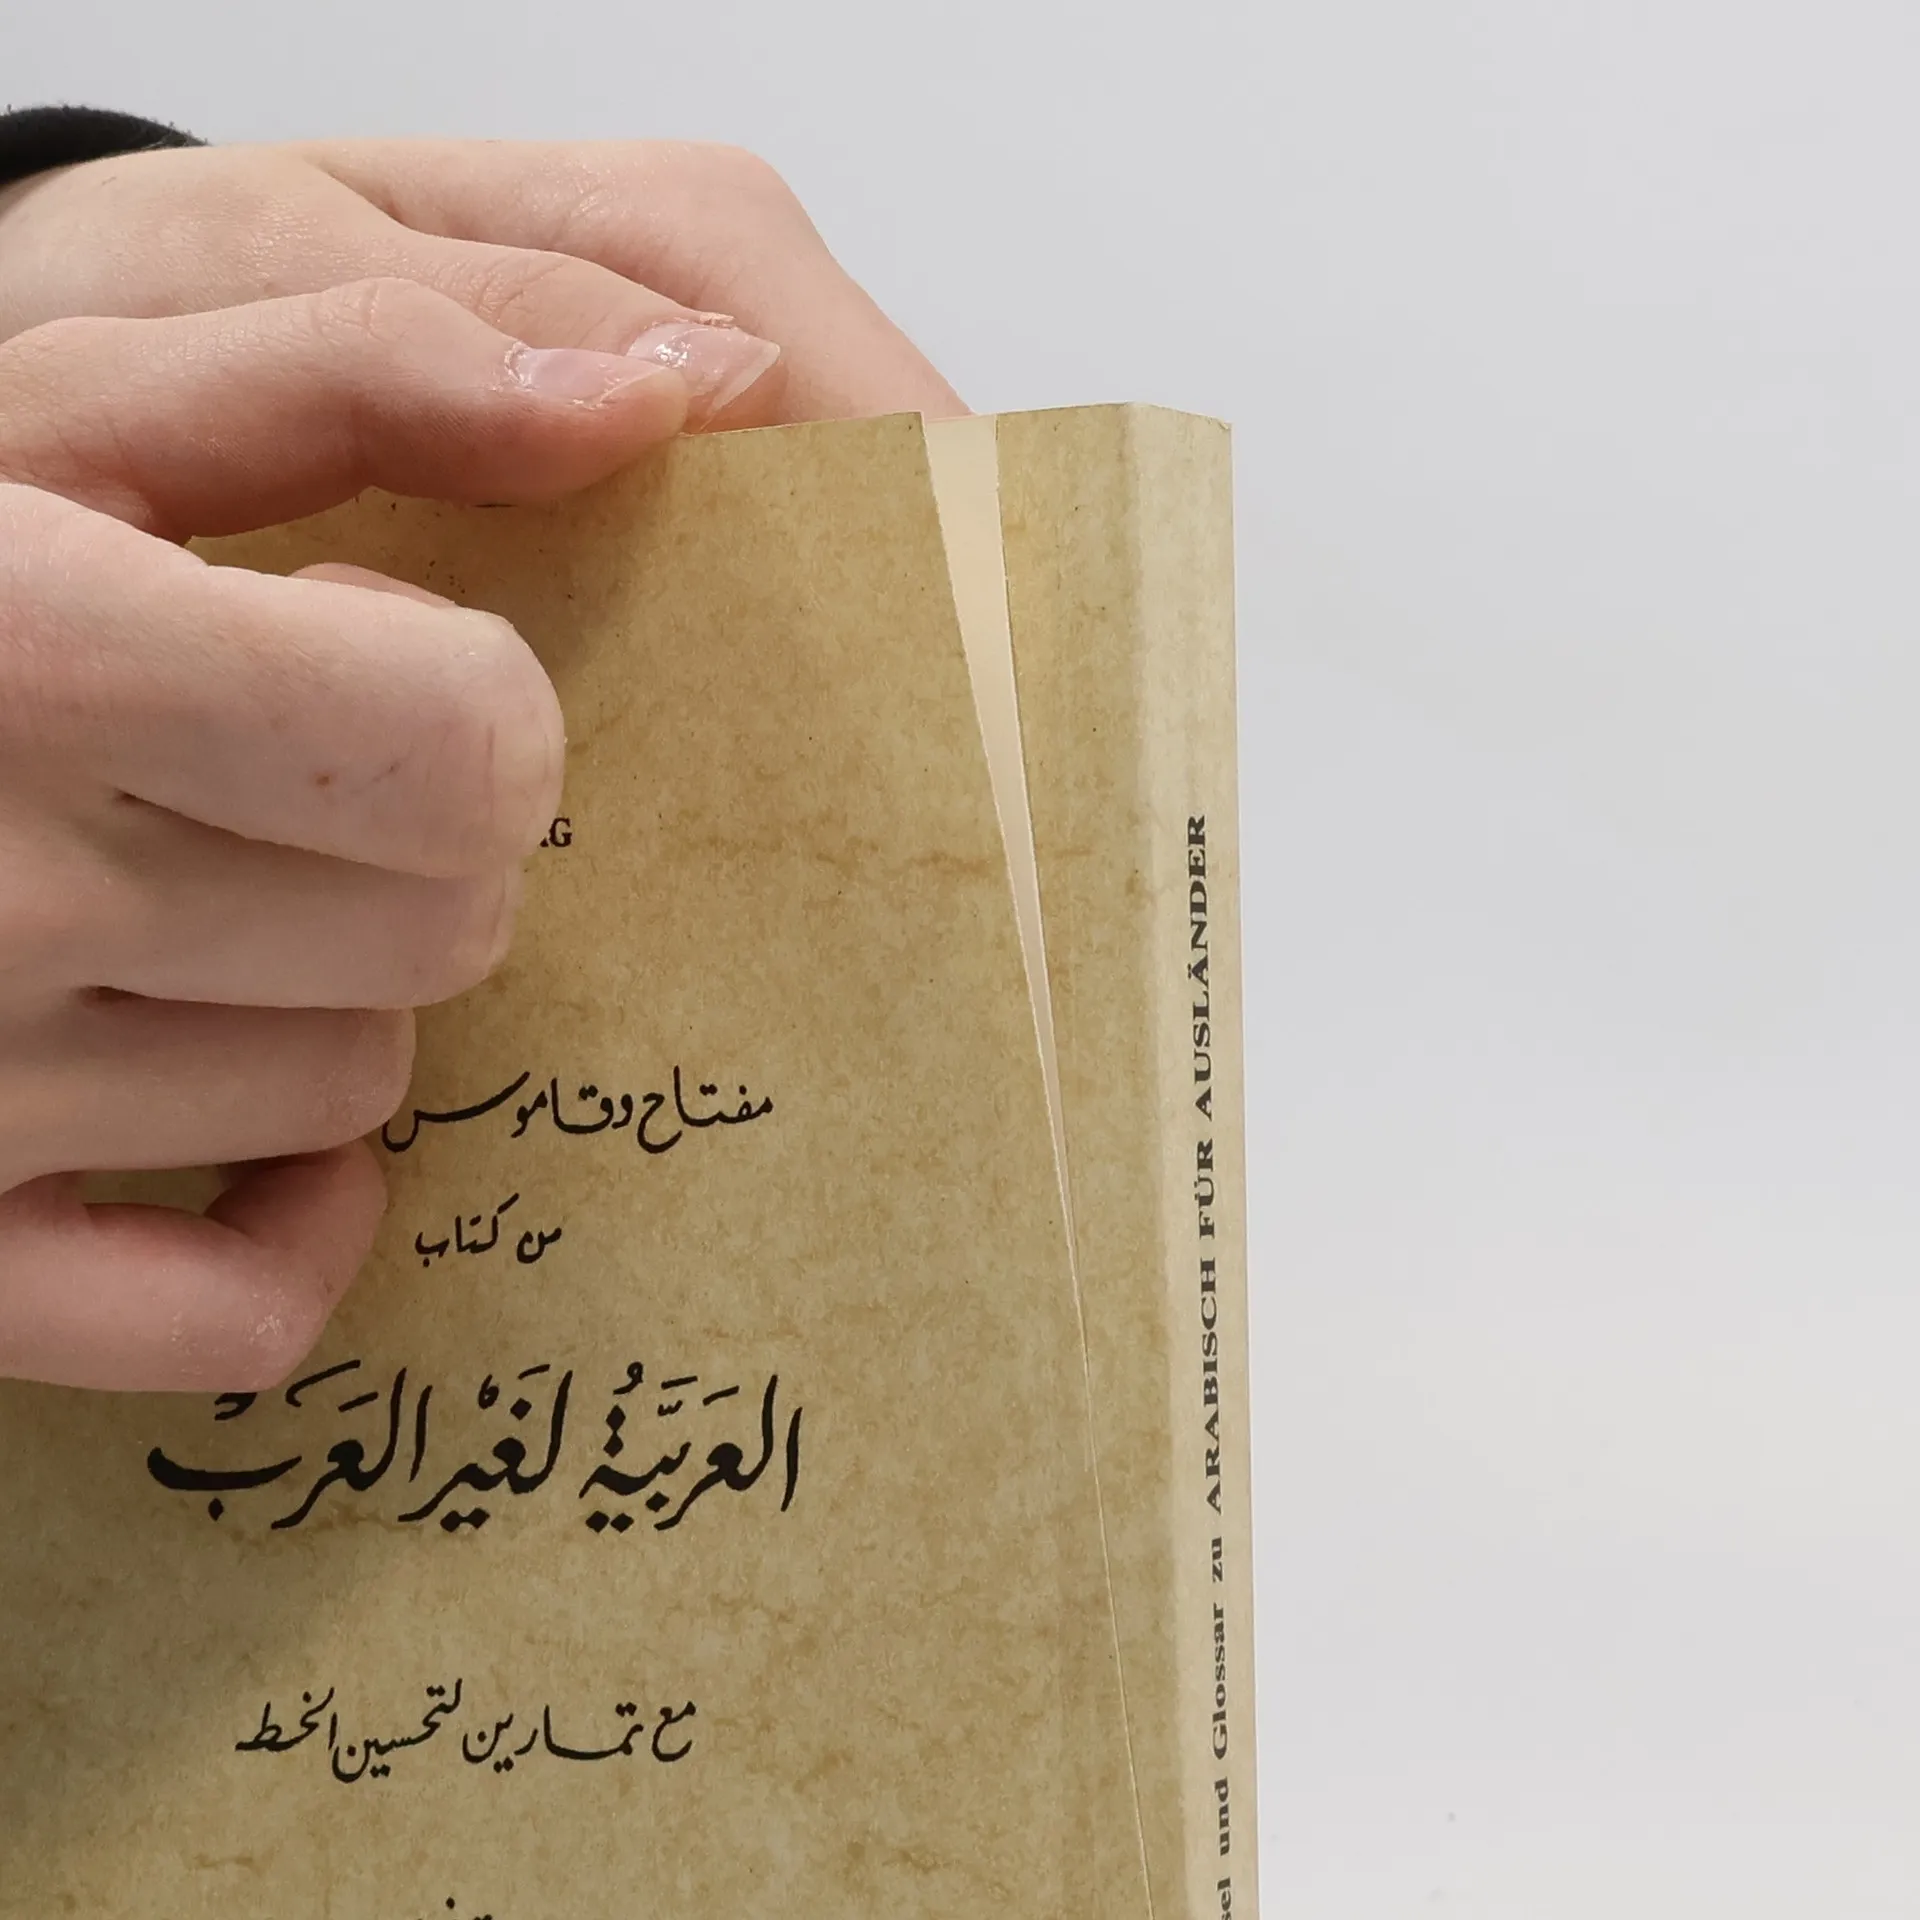 مفتاح وقاموس
من كتاب
العَرَبيَّةُ لغَيْر العَرَبْ
مع تمارين لتحسين الخط
und Glossar zu ARABISCH FÜR AUSLÄNDER